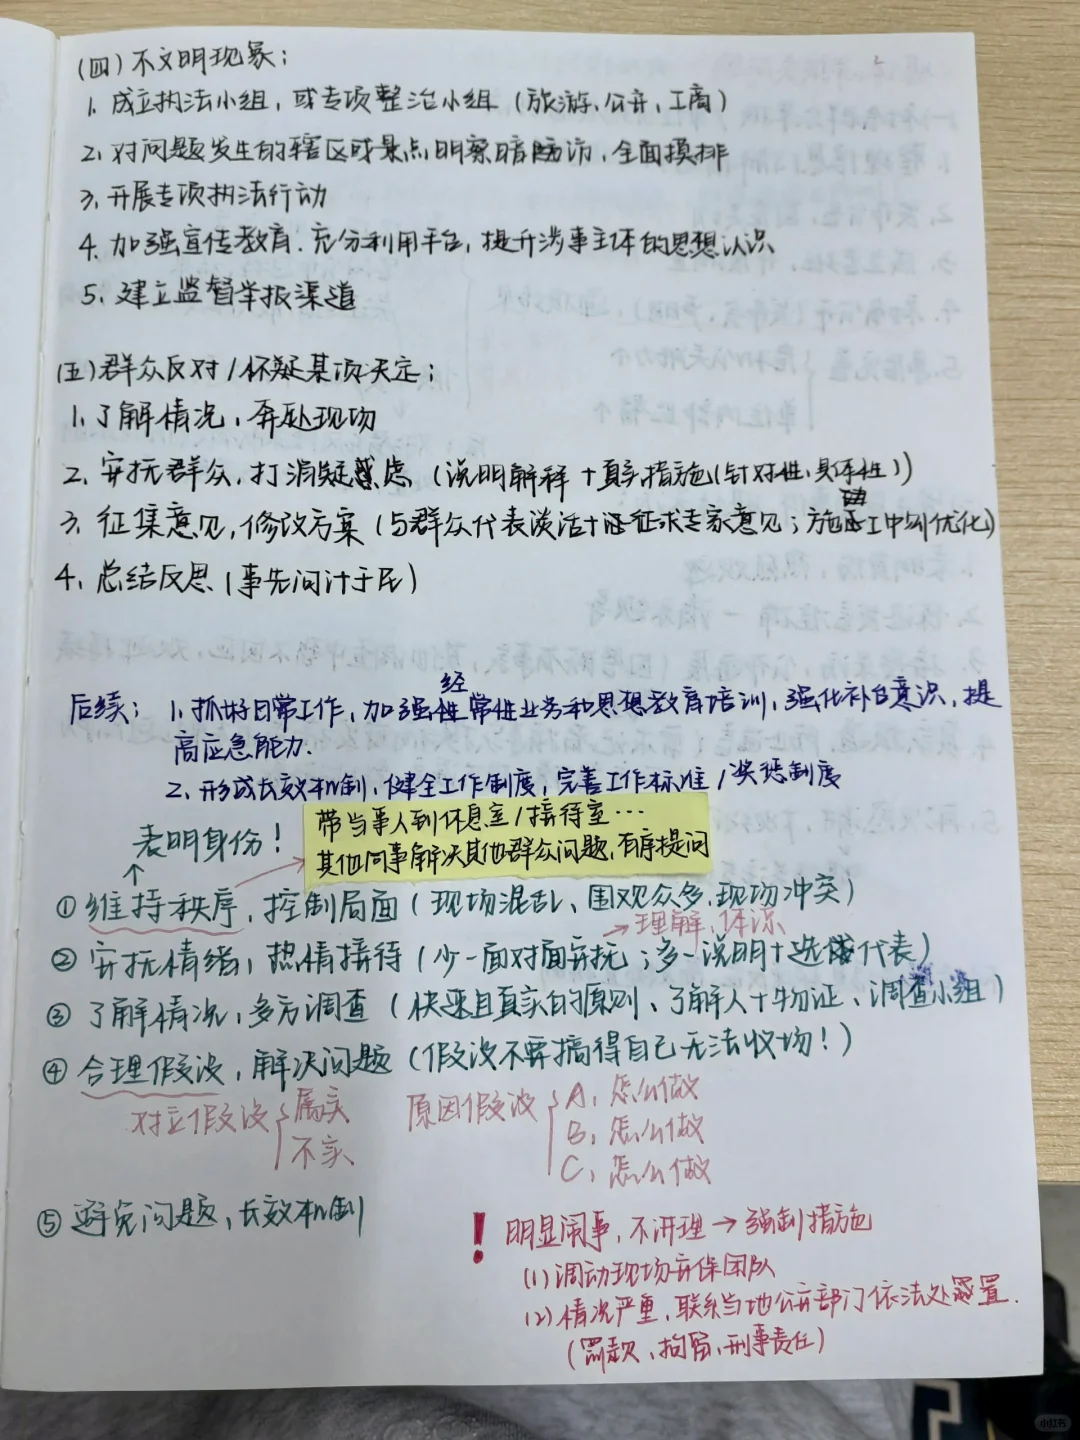 (四)不文明现象：
1. 成立执法小组，或专项整治小组（旅游、公安、工商）
2. 对问题发生的辖区或景点明察暗访，全面摸排
3. 开展专项执法行动
4. 加强宣传教育. 充分利用平台，提升涉事主体的思想认识
5. 建立监督举报渠道
(五)群众反对/怀疑某项决定；
1. 了解情况，奔赴现场
2. 安抚群众，打消疑虑（说明解释+真实措施(针对性、具体性)）
3. 征集意见，修改方案（与群众代表谈话+征求专家意见；施工中动态优化）
4. 总结反思（事先问计于民）
后续：1. 抓好日常工作，加强经常性业务和思想教育培训，强化补台意识，提
高应急能力.
2. 形成长效机制，健全工作制度，完善工作标准/奖惩制度
表明身份！
带当事人到休息室/接待室…
其他同事解决其他群众问题，有序提问
① 维持秩序，控制局面（现场混乱、围观众多、现场冲突）
→理解、体谅
② 安抚情绪，热情接待（少—面对面安抚；多—说明+选代表）
③ 了解情况，多方调查（快速且真实的原则、了解人+物证、调查小组）
④ 合理假设，解决问题（假设不要搞得自己无法收场！）
对立假设 属实
不实
原因假设 A. 怎么做
B. 怎么做
C. 怎么做
⑤ 避免问题，长效机制
！明显闹事，不讲理→强制措施
(1) 调动现场安保团队
(2) 情况严重，联系当地公安部门依法处置.
（罚款、拘留、刑事责任）
小红书